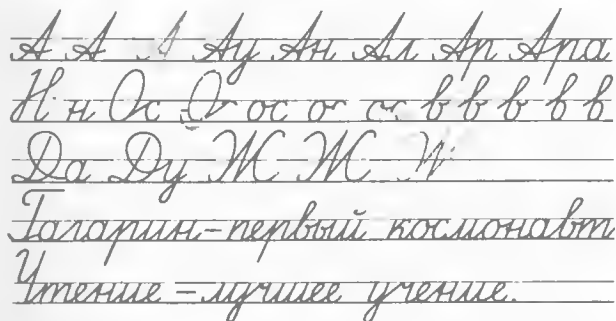 А А А Ау Ан Ал Ар Ара
Н н Ос О ос о с в в в в в
Да Ду Ж Ж
Гагарин - первый космонавт
Чтение - лучшее учение.